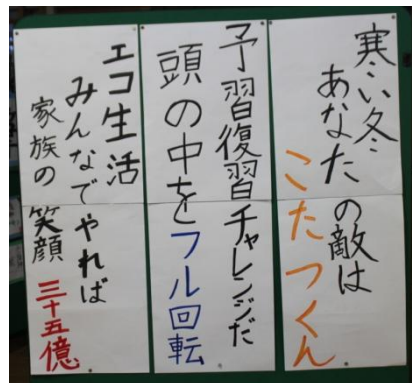 寒い冬
あなたの敵は
こたつくん
予習復習チャレンジだ
頭の中をフル回転
エコ生活
みんなでやれば
家族の笑顔三十五億